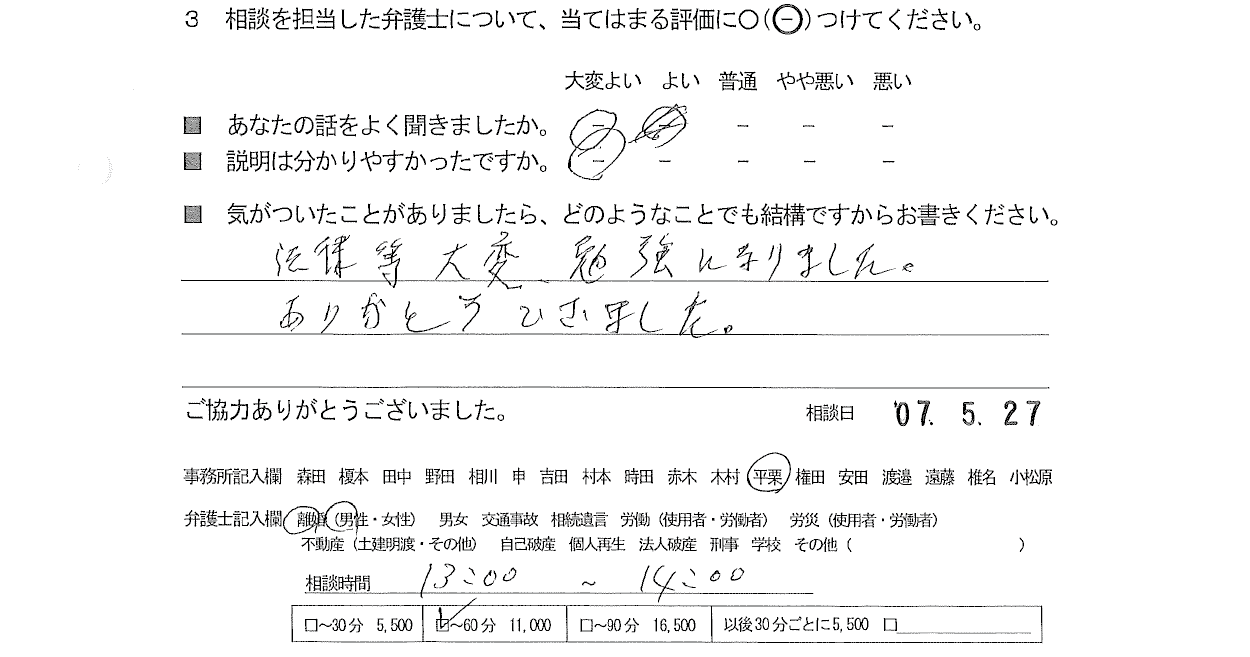 3 相談を担当した弁護士について、当てはまる評価に○(㊀)つけてください。
大変よい よい 普通 やや悪い 悪い
■ あなたの話をよく聞きましたか。 － － － － －
■ 説明は分かりやすかったですか。 － － － － －
■ 気がついたことがありましたら、どのようなことでも結構ですからお書きください。
法律等大変、勉強になりました。
ありがとうございました。
ご協力ありがとうございました。 相談日 '07. 5. 27
事務所記入欄 森田 榎本 田中 野田 相川 申 吉田 村本 時田 赤木 木村 平栗 権田 安田 渡邉 遠藤 椎名 小松原
弁護士記入欄 離婚（男性・女性） 男女 交通事故 相続遺言 労働（使用者・労働者） 労災（使用者・労働者）
不動産（土建明渡・その他） 自己破産 個人再生 法人破産 刑事 学校 その他（ ）
相談時間 13:00 ～ 14:00
□～30分 5,500 ☑～60分 11,000 □～90分 16,500 以後30分ごとに5,500 □